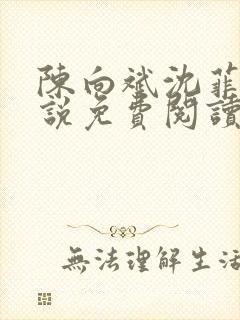 陳向斌沈菲
說免費閱讀
無法理解生活